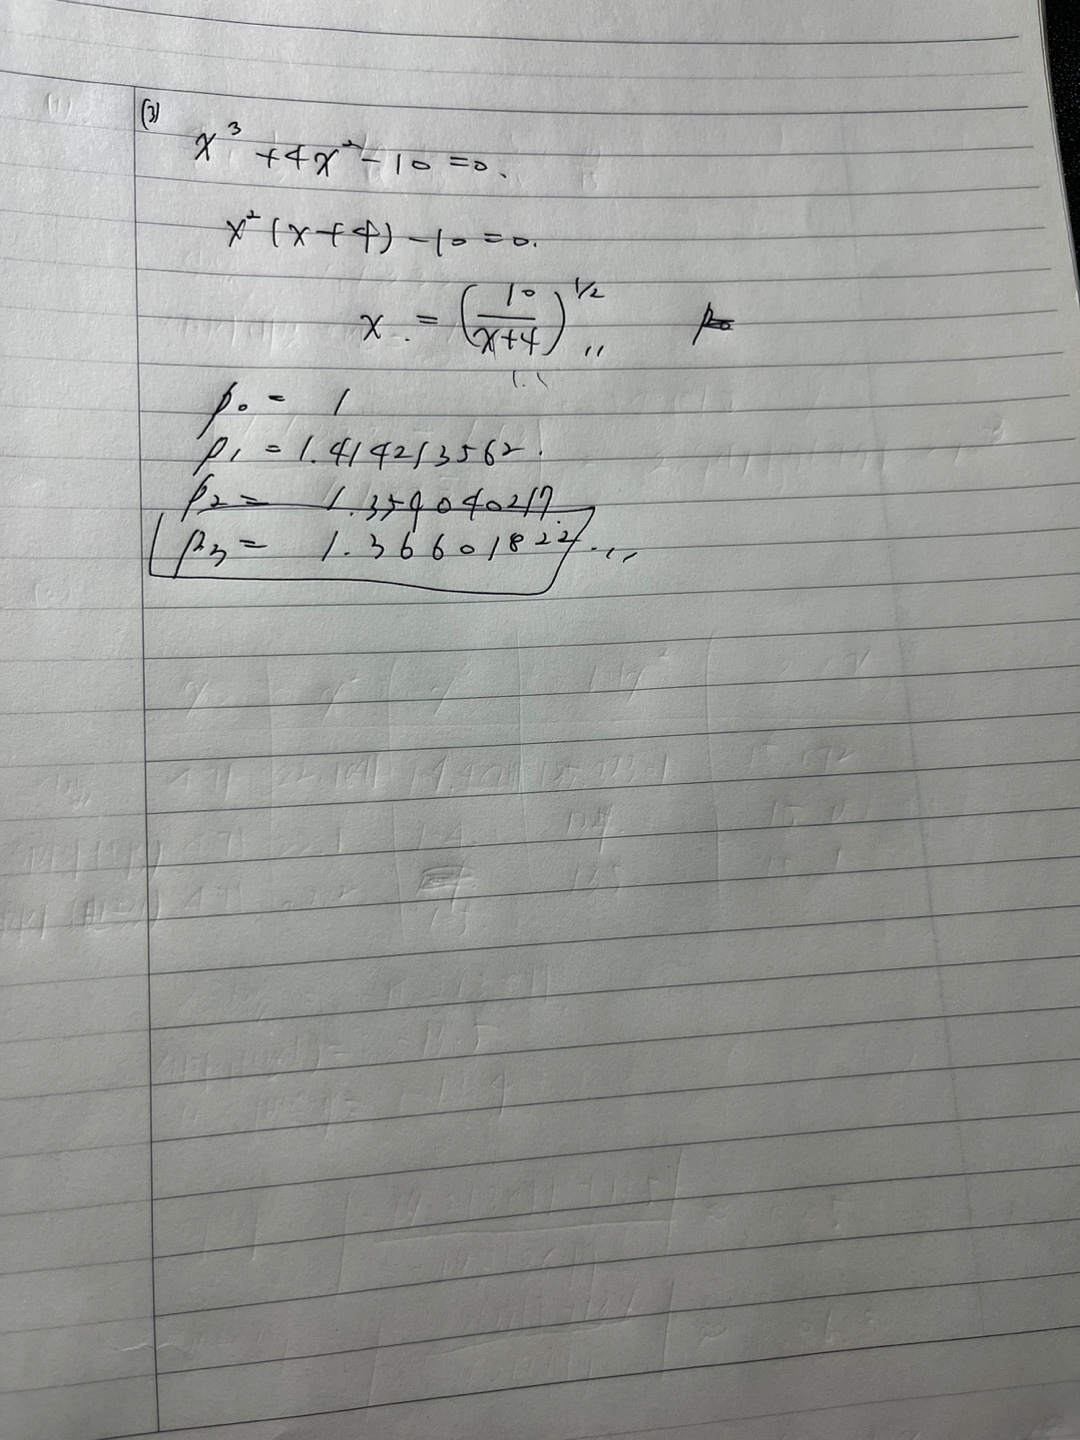 (3)
x³ + 4x² - 10 = 0.
x² (x + 4) - 10 = 0.
x. = (10/(x+4))^1/2 ,,
p₀ = 1
p₁ = 1.414213562.
p₂ = 1.359040217
p₃ = 1.36601822...,,